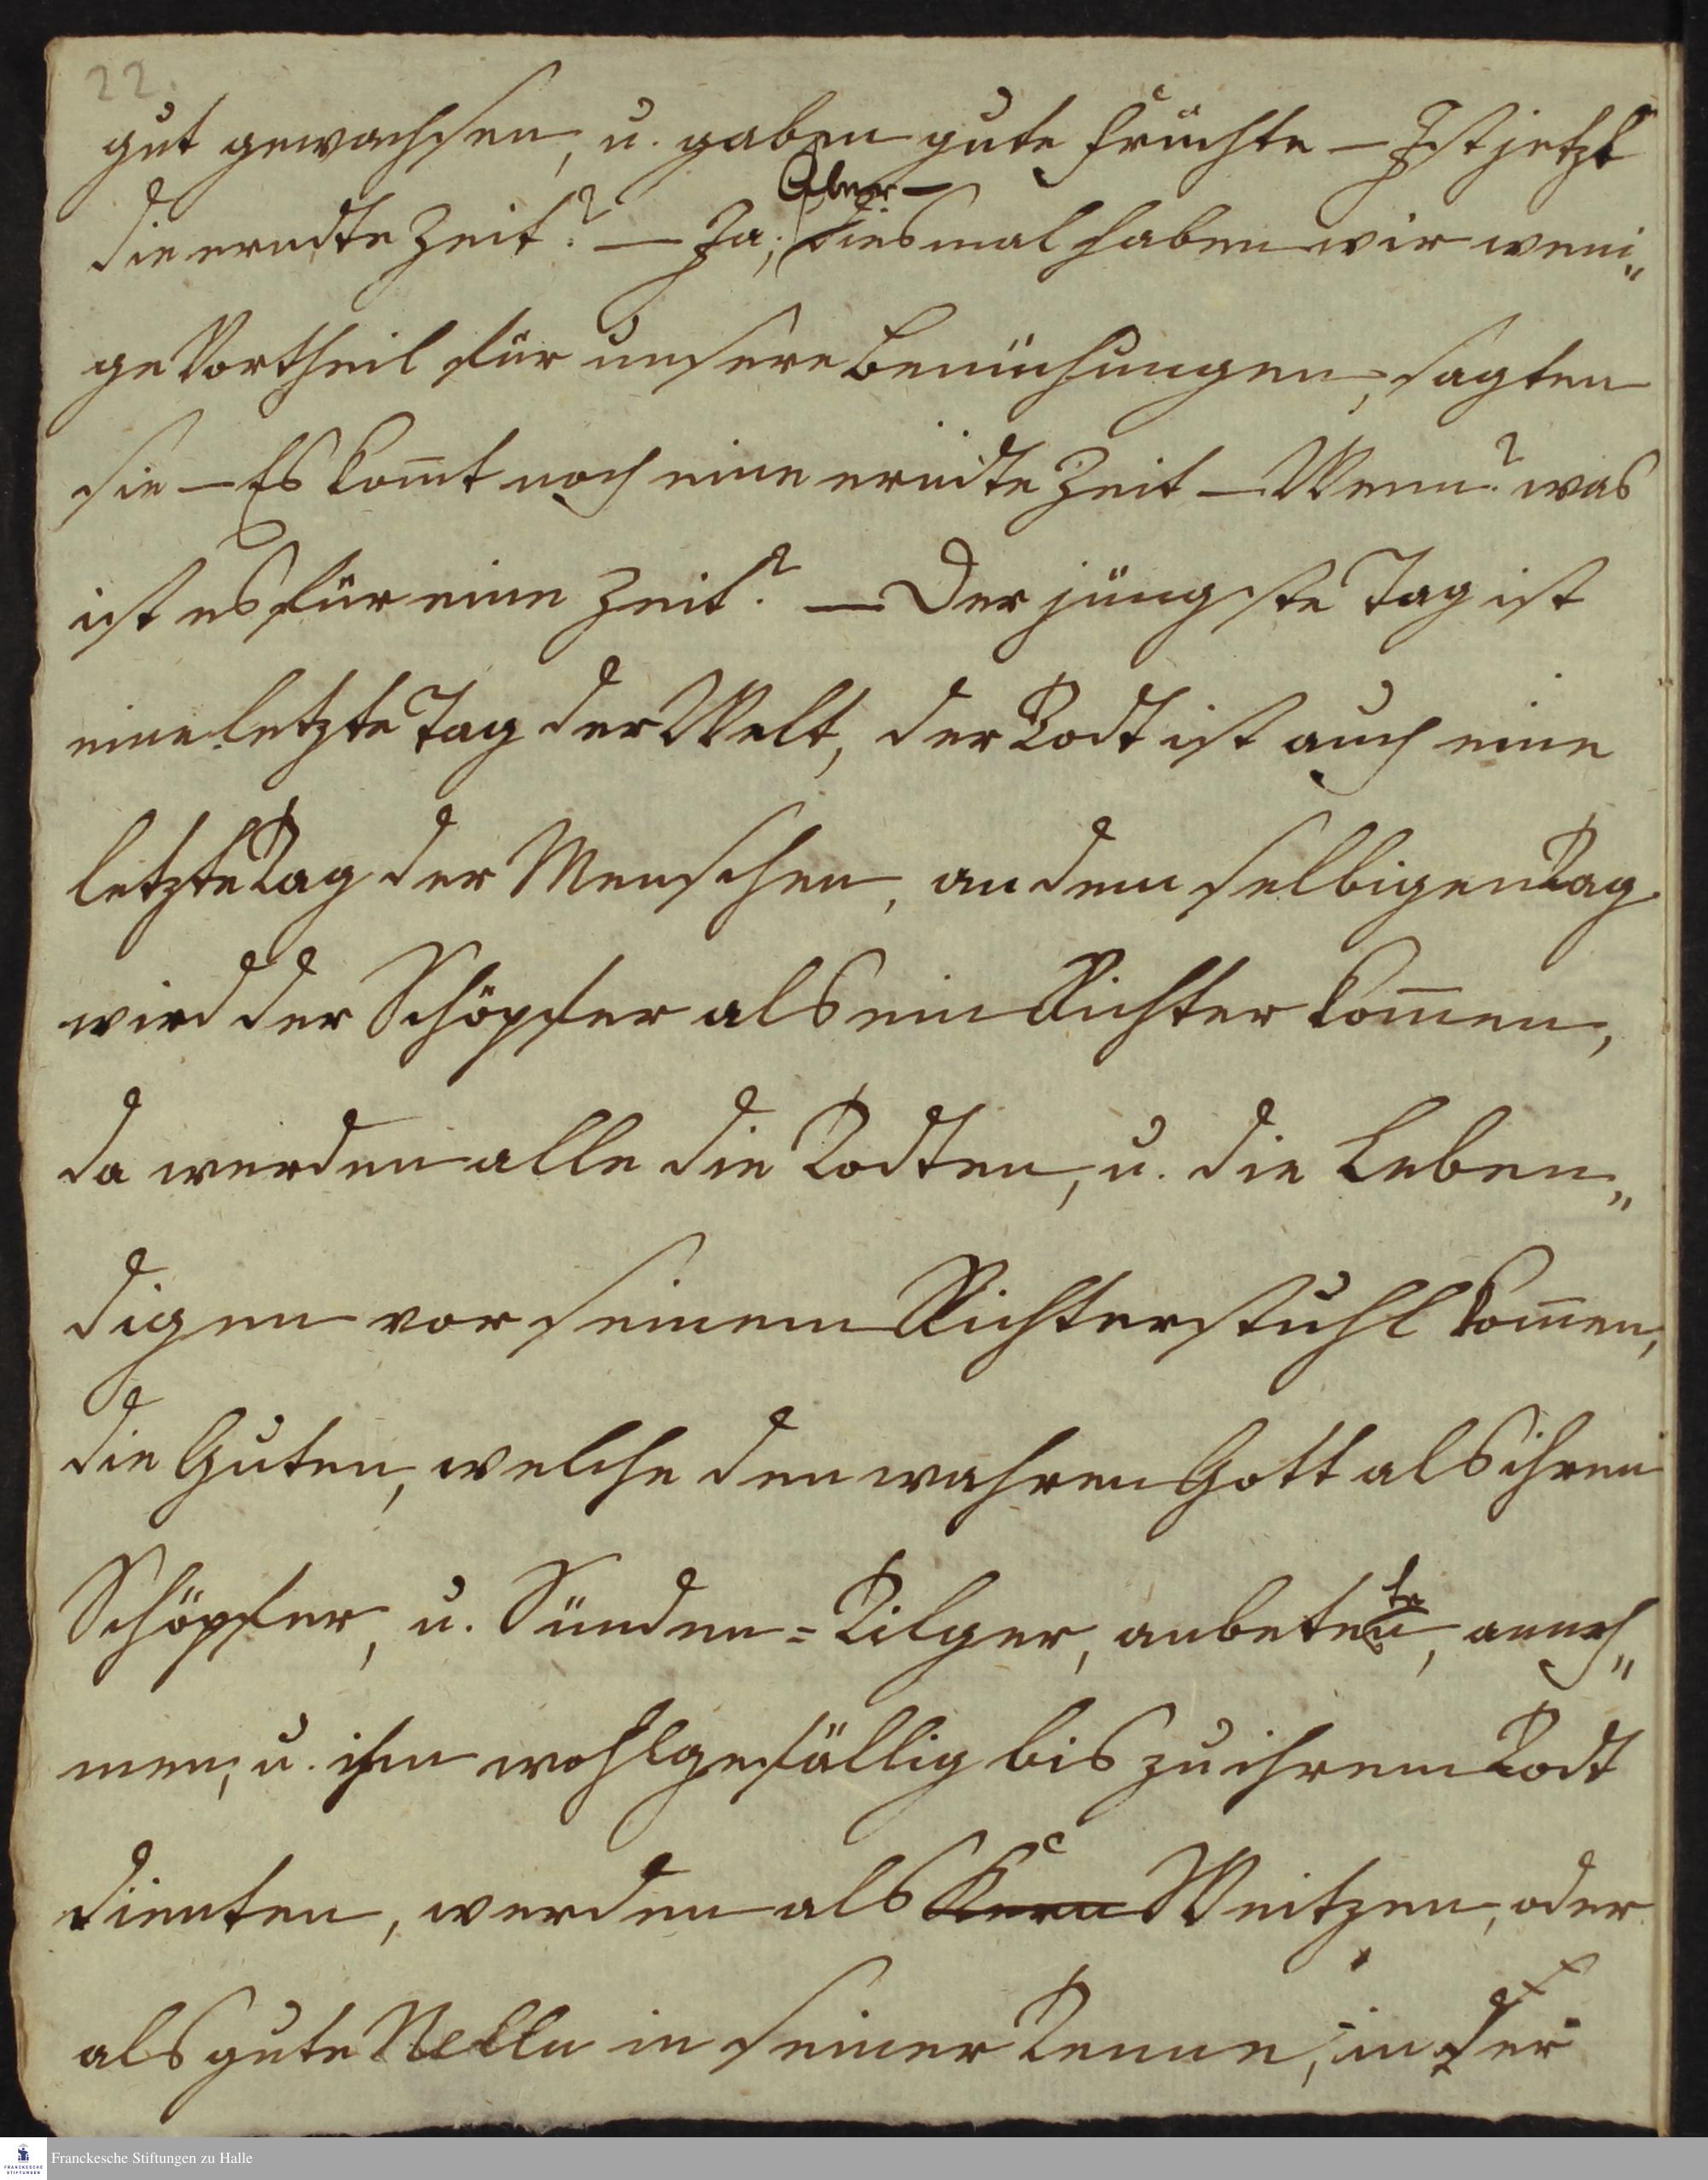 22.
gut gewachsen, u. gaben gute Früchte – Ist jetzt
Aber –
die erndte Zeit? – Ja; diesmal haben wir weni„
ge Vortheil für unsere Bemühungen, sagten
sie – Es kom̅t noch eine erndte Zeit – Wenn? was
ist es für eine Zeit? – Der jüngste Tag ist
eine letzte Tag der Welt, der Todt ist auch eine
letzte Tag der Menschen, an dem selbigen Tag
wird der Schöpfer als ein Richter kom̅en,
da werden alle die Todten, u. die Leben„
digen vor seinem Richterstuhl kom̅en,
die Guten, welche den wahren Gott als ihren
Schöpfer, u. Sünden=Tilger, anbeten, anneh„
men, u. ihm wohlgefällig bis zu ihrem Todt
dienten, werden als Kern Weitzen, oder
als gute Nellu in seiner Tenne, in der
Franckesche Stiftungen zu Halle